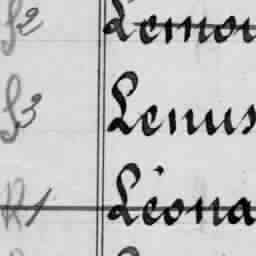 f2 Lemou
f3 Lenus
R1 Léona